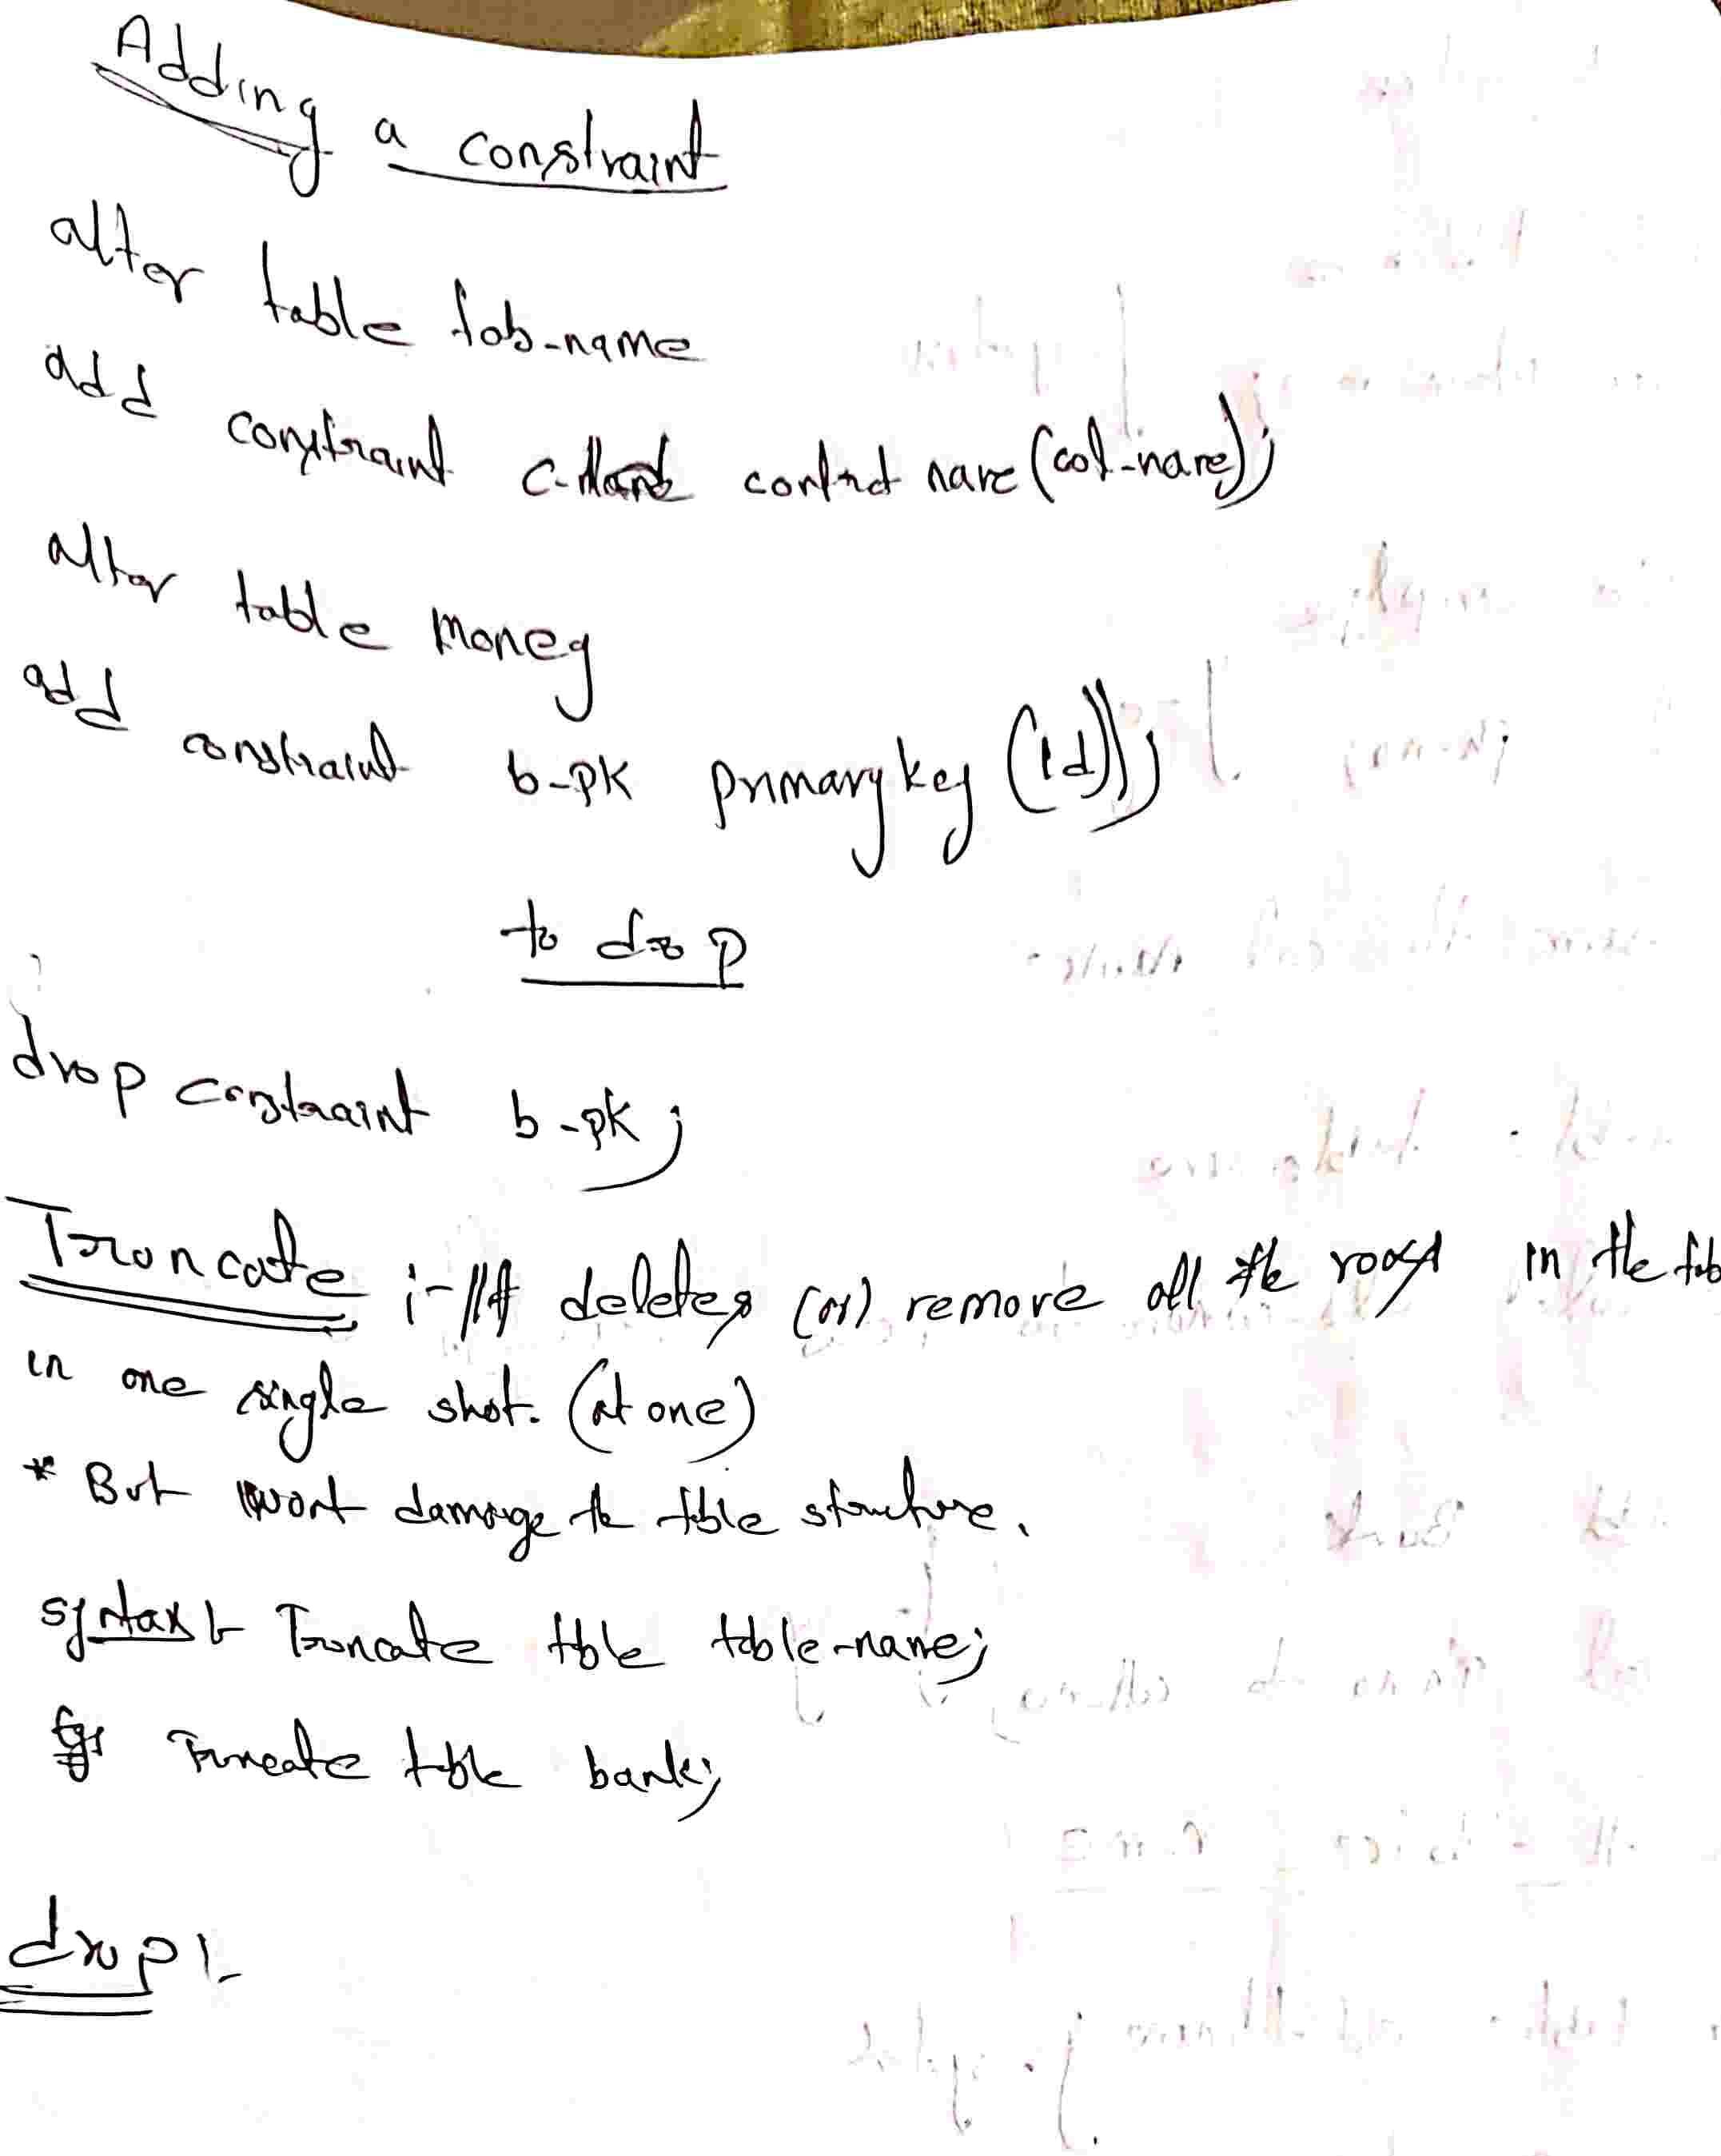 Adding a constraint
alter table tab-name
add constraint c-name name (col-name);
alter table money
add constraint b-pk primary key (id));
to drop
drop constraint b-pk;
Truncate :- It deletes (or) remove all the rows in the tab
in one single shot. (at one)
* But wont damage the table structure.
syntax :- Truncate table table-name;
Eg: Truncate table bank;
drop :-